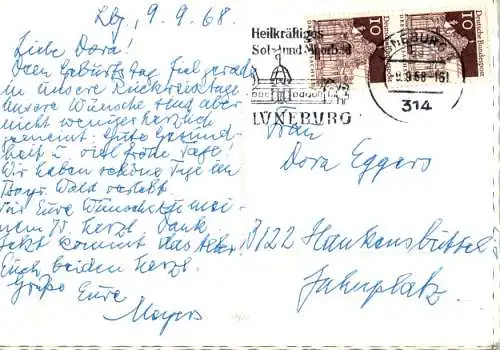 Lbg, 9.9.68.
Liebe Dora!
Dein Geburtstag fiel gerade
in unsere Rückreisetage
unsere Wünsche sind aber
nicht weniger herzlich
gemeint. Gute Gesund-
heit u. viel frohe Tage!
Wir haben schöne Tage im
Bayr. Wald verlebt.
Für Eure Wünsche zu mei-
nem 70. herzl. Dank.
Jetzt kommt das Alter!
Euch beiden herzl.
Grüße Eure
Meyers
Heilkräftiges
Sol- und Moorbad
LÜNEBURG
LÜNEBURG
-9.9.68-16
314
10
Deutsche Bundespost
10
Deutsche Bundespost
Frau
Dora Eggers
3122 Hankensbüttel
Jahnplatz